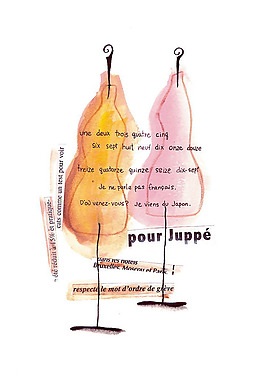 une deux trois quatre cinq
six sept huit neuf dix onze douze
treize quatorze quinze seize dix-sept
Je ne parle pas français.
D'où venez-vous? Je viens du Japon.
pour Juppé
dans les hôtels
Bruxelles, Moscou et Paris
respecte le mot d'ordre de grève
cats comme un test pour voir
été réduit à 45% et pratique-